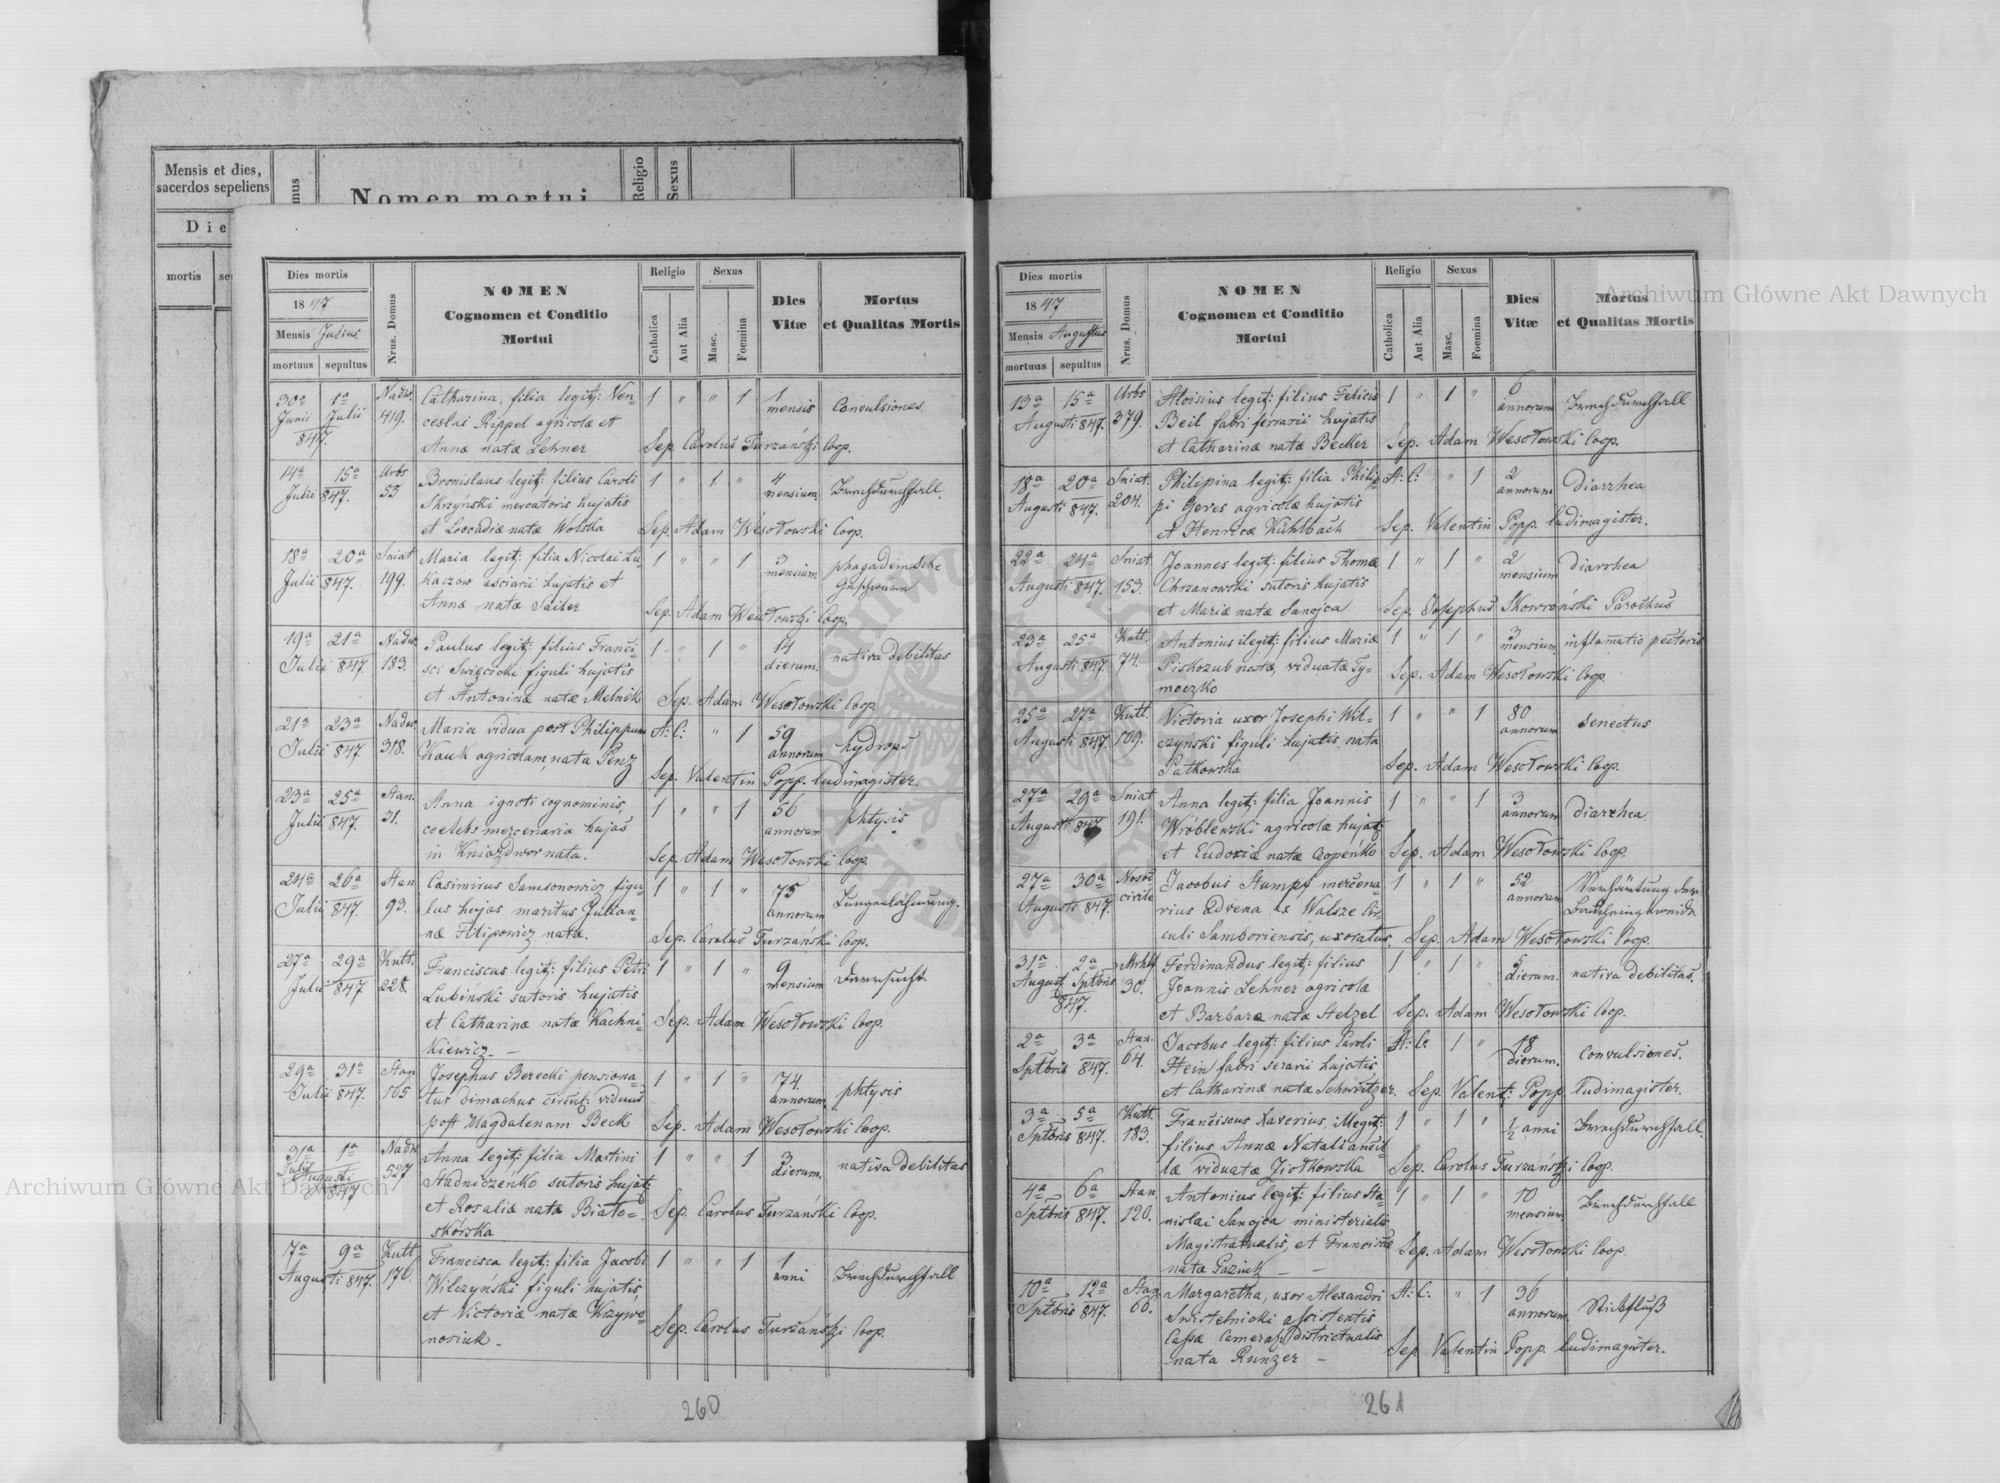 Mensis et dies,
sacerdos sepeliens
Nomen mortui
Religio
Sexus
mortis
Dies mortis
1847
Mensis Julius
mortuus sepultus
Nrus. Domus
NOMEN
Cognomen et Conditio
Mortui
Religio
Catholica
Aut Alia
Sexus
Masc.
Foemina
Dies
Vitæ
Mortus
et Qualitas Mortis
30a Junii 1a Julii 847. Nadw. 419. Catharina, filia legit: Ven-
ceslai Rippel agricolæ et
Annæ natæ Lehner
1 " " 1 1 mensis Convulsiones.
Sep. Carolus Turzański Coop.
14a Julii 15a 847. Urbs 53 Bronislaus legit: filius Caroli
Skrzyński mercatoris hujatis
et Leocadiæ natæ Wolska
1 " 1 " 4 mensium. Brechdurchfall.
Sep. Adam Wesołowski Coop.
18a Julii 20a 847. Sniat. 199. Maria legit: filia Nicolai Lu-
kaczow asciarii hujatis et
Annæ natæ Sailer
1 " " 1 3 mensium
Sep. Adam Wesołowski Coop.
19a Julii 21a 847 Nadw. 183. Paulus legit: filius Franci-
sci Swięcicki figuli hujatis
et Antoninæ natæ Melnik
1 " 1 " 14 dierum. nativa debilitas
Sep. Adam Wesołowski Coop.
21a Julii 23a 847 Nadw. 318. Maria vidua post Philippum
Kauk agricolam, nata Penz
A: C: " 1 59 annorum hydrops
Sep. Valentin Popp. ludimagister.
23a Julii 25a 847. Stan. 31. Anna ignoti cognominis,
coelebs mercenaria hujas
in Kniazdwor nata.
1 " " 1 56 annorum phtysis
Sep. Adam Wesołowski Coop.
24a Julii 26a 847. Stan 93. Casimirus Samsonowicz figu-
lus hujas maritus Julian-
næ Filipowicz natæ.
1 " 1 " 75 annorum Lungenlähmung.
Sep. Carolus Turzański Coop.
27a Julii 29a 847 Kutt. 228. Franciscus legit: filius Petri
Lubiński sutoris hujatis
et Catharinæ natæ Kachni-
kiewicz. —
1 " 1 " 9 mensium
Sep. Adam Wesołowski Coop.
29a Julii 31a 847. Stan 105 Josephus Berecki pensiona-
tus viduus
post Magdalenam Beck
1 " 1 " 74. annorum, phtysis
Sep. Adam Wesołowski Coop.
31a Julii 1a Augusti 847 Nadw 527 Anna legit: filia Martini
Stadniczeńko sutoris hujat:
et Rosaliæ natæ Biało-
skórska
1 " " 1 3 dierum. nativa debilitas
Sep. Carolus Turzański Coop.
17a 9a Augusti 847. Kutt. 176. Francisca legit: filia Jacobi
Wilczyński figuli hujatis,
et Victoriæ natæ Krzywo-
nosiuk.
1 " " 1 1 anni Brechdurchfall
Sep. Carolus Turzański Coop.
260
Dies mortis
1847
Mensis Augustus
mortuus sepultus
Nrus. Domus
NOMEN
Cognomen et Conditio
Mortui
Religio
Catholica
Aut Alia
Sexus
Masc.
Foemina
Dies
Vitæ
Mortus
et Qualitas Mortis
13a 15a Augusti 847. Urbs 379. Aloisius legit: filius Felicis
Beil fabri ferrarii hujatis
et Catharinæ natæ Becker
1 " 1 " 6 annorum Brechdurchfall
Sep. Adam Wesołowski Coop.
18a 20a Augusti 847. Sniat. 204. Philipina legit: filia Philip-
pi Geres agricolæ hujatis
et Henricæ Kühlbach
A: C: " 1 2 annorum diarrhea
Sep. Valentin Popp. ludimagister.
22a 24a Augusti 847. Sniat. 153. Joannes legit: filius Thomæ
Chrzanowski sutoris hujatis
et Mariæ natæ Sanojca
1 " 1 " 2 mensium diarrhea
Sep. Josephus Skowroński Parochus
23a 25a Augusti 847 Kutt. 74. Antonius ilegit: filius Mariæ
Piskozub natæ, viduatæ Ty-
moczko
1 " 1 " 3 mensium inflamatio pectoris
Sep. Adam Wesołowski Coop.
25a 27a Augusti 847. Kutt. 109. Victoria uxor Josephi Wil-
czyński figuli hujatis nata
Patkowska
1 " " 1 80 annorum senectus
Sep. Adam Wesołowski Coop.
27a 29a Augusti 847 Sniat. 191. Anna legit: filia Joannis
Wróblewski agricolæ hujat:
et Eudoxiæ natæ
1 " " 1 3 annorum diarrhea
Sep. Adam Wesołowski Coop.
27a 30a Augusti 847. civile Jacobus Stumpf mercena-
rius advena ex Walsze Cir-
culi Samboriensis, uxoratus.
1 " 1 " 52 annorum Verhärtung der
Sep. Adam Wesołowski Coop.
31a August 2a Sptbris 847. 30. Ferdinandus legit: filius
Joannis Lehner agricolæ
et Barbaræ natæ Stelzel
1 " 1 " 5 dierum. nativa debilitas.
Sep. Adam Wesołowski Coop.
2a 3a Sptbris 847. Stan. 64. Jacobus legit: filius Caroli
Stein fabri serarii hujatis
et Catharinæ natæ Schweitzer.
A: C: 1 " 18 dierum. Convulsiones.
Sep. Valent: Popp ludimagister.
3a 5a Sptbris 847. Kutt. 183. Franciscus Xaverius, illegit:
filius Annæ Natali ancil-
læ viduatæ Ziółkowska
1 " 1 " ½ anni Brechdurchfall.
Sep. Carolus Turzański Coop.
4a 6a Sptbris 847. Stan. 120. Antonius legit: filius Sta-
nislai Sanojca ministerialis
Magistratualis, et Franciscæ
natæ
1 " 1 " 10 mensium Brechdurchfall
Sep. Adam Wesołowski Coop.
10a 12a Sptbris 847. Stan 60. Margaretha, uxor Alexandri
Swistelnicki assistentis
Cassæ Cameral: districtualis
nata Runzer —
A: C: " 1 36 annorum Stickfluß
Sep Valentin Popp. ludimagister.
261
Archiwum Główne Akt Dawnych
Archiwum Główne Akt Dawnych